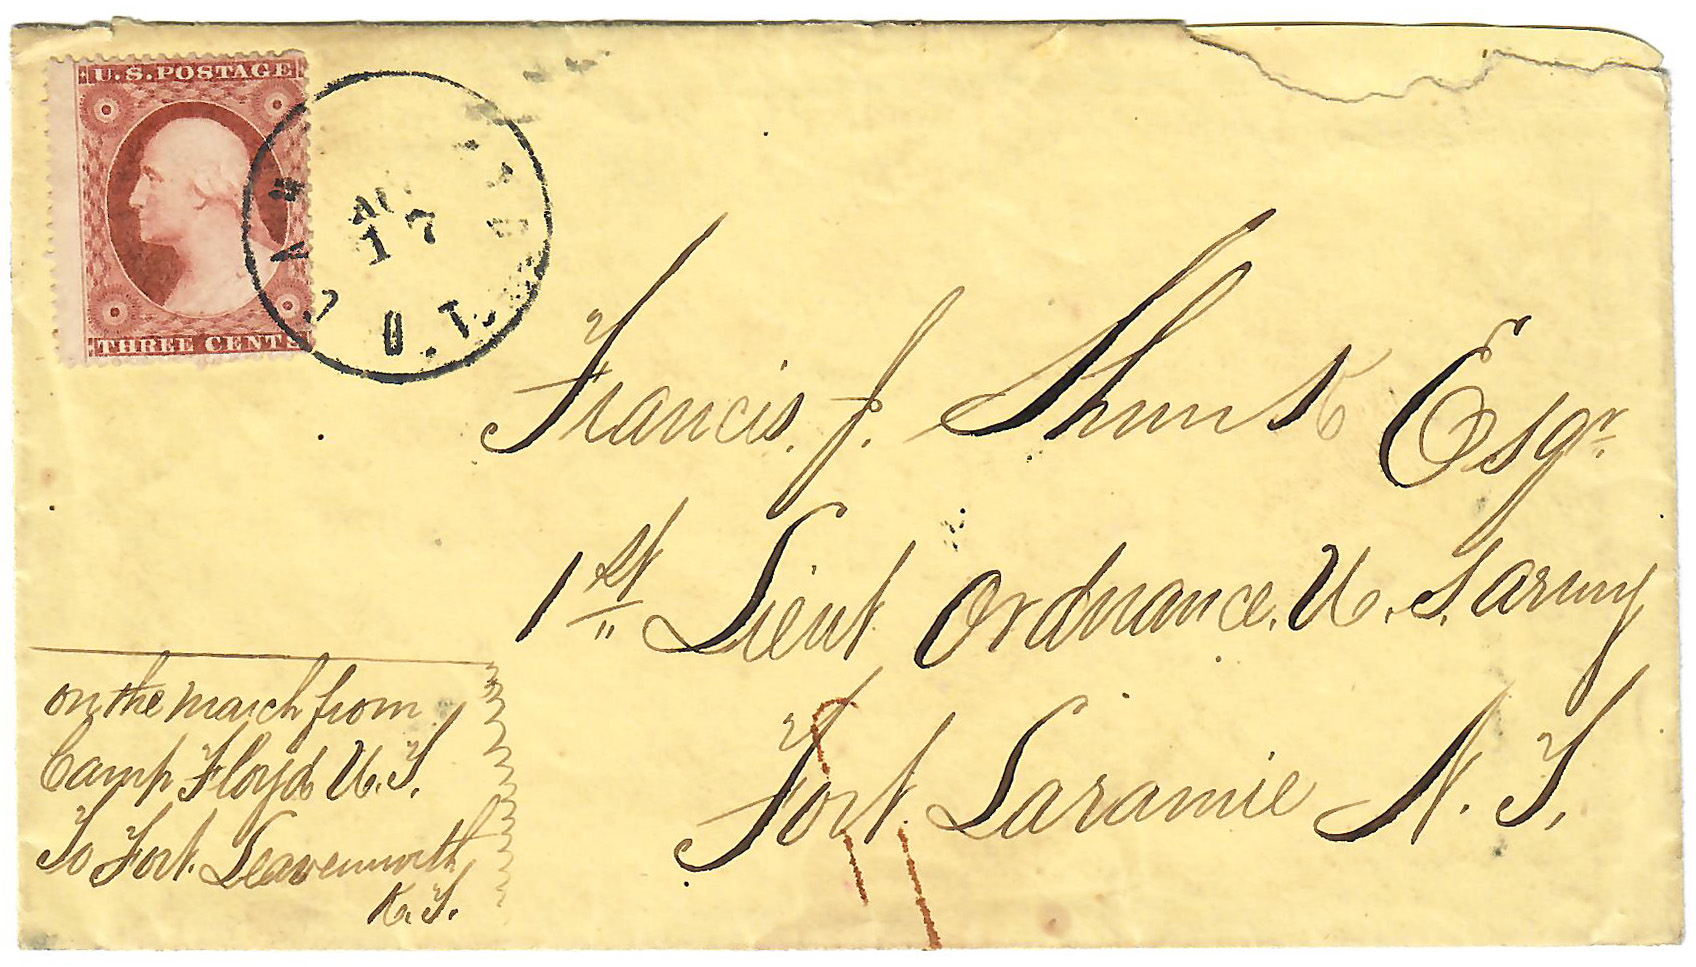 U.S. POSTAGE
THREE CENTS
17
U.T.
Francis. J. Shunk Esqr.
1st Lieut Ordnance. U. S. army
Fort Laramie N. T.
on the march from
Camp Floyd U. T.
To Fort. Leavenworth
K. T.